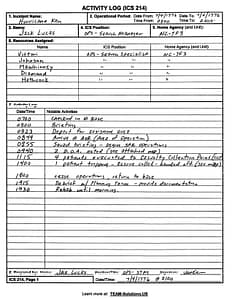 ACTIVITY LOG (ICS 214)
1. Incident Name:
Hurricane Ken
2. Operational Period: Date From: 9/4/1996 Date To: 9/4/1996
Time From: 0700 Time To: 2100
3. Name:
Jake Lucas
4. ICS Position:
OPS - Search Manager
5. Home Agency (and Unit):
NC-TF3
6. Resources Assigned:
Name
ICS Position
Home Agency (and Unit)
OPS - Search Specialist
NC-TF3
Johnson
Diamond
7. Activity Log:
Date/Time
Notable Activities
0700 Checked in @ Base
0800 Briefing
0823 Depart for
0844 Arrive @ AOA (Area of Operation)
0855 Squad briefing - begin SAR operations
0940 2 D.O.A. noted (see attached map)
1115 4 patients evacuated to Casualty Collection Point
1400 1 patient trapped - rescue called - handed off (see map)
1800 Cease operations, return to base
1915 Debrief w/ Planning Team - provide documentation
1930 Rehab until morning
8. Prepared by: Name: Jake Lucas Position/Title: OPS - Signature:
ICS 214, Page 1
Date/Time: 9/4/1996 @ 2100
Learn more at: TEAM-Solutions.US